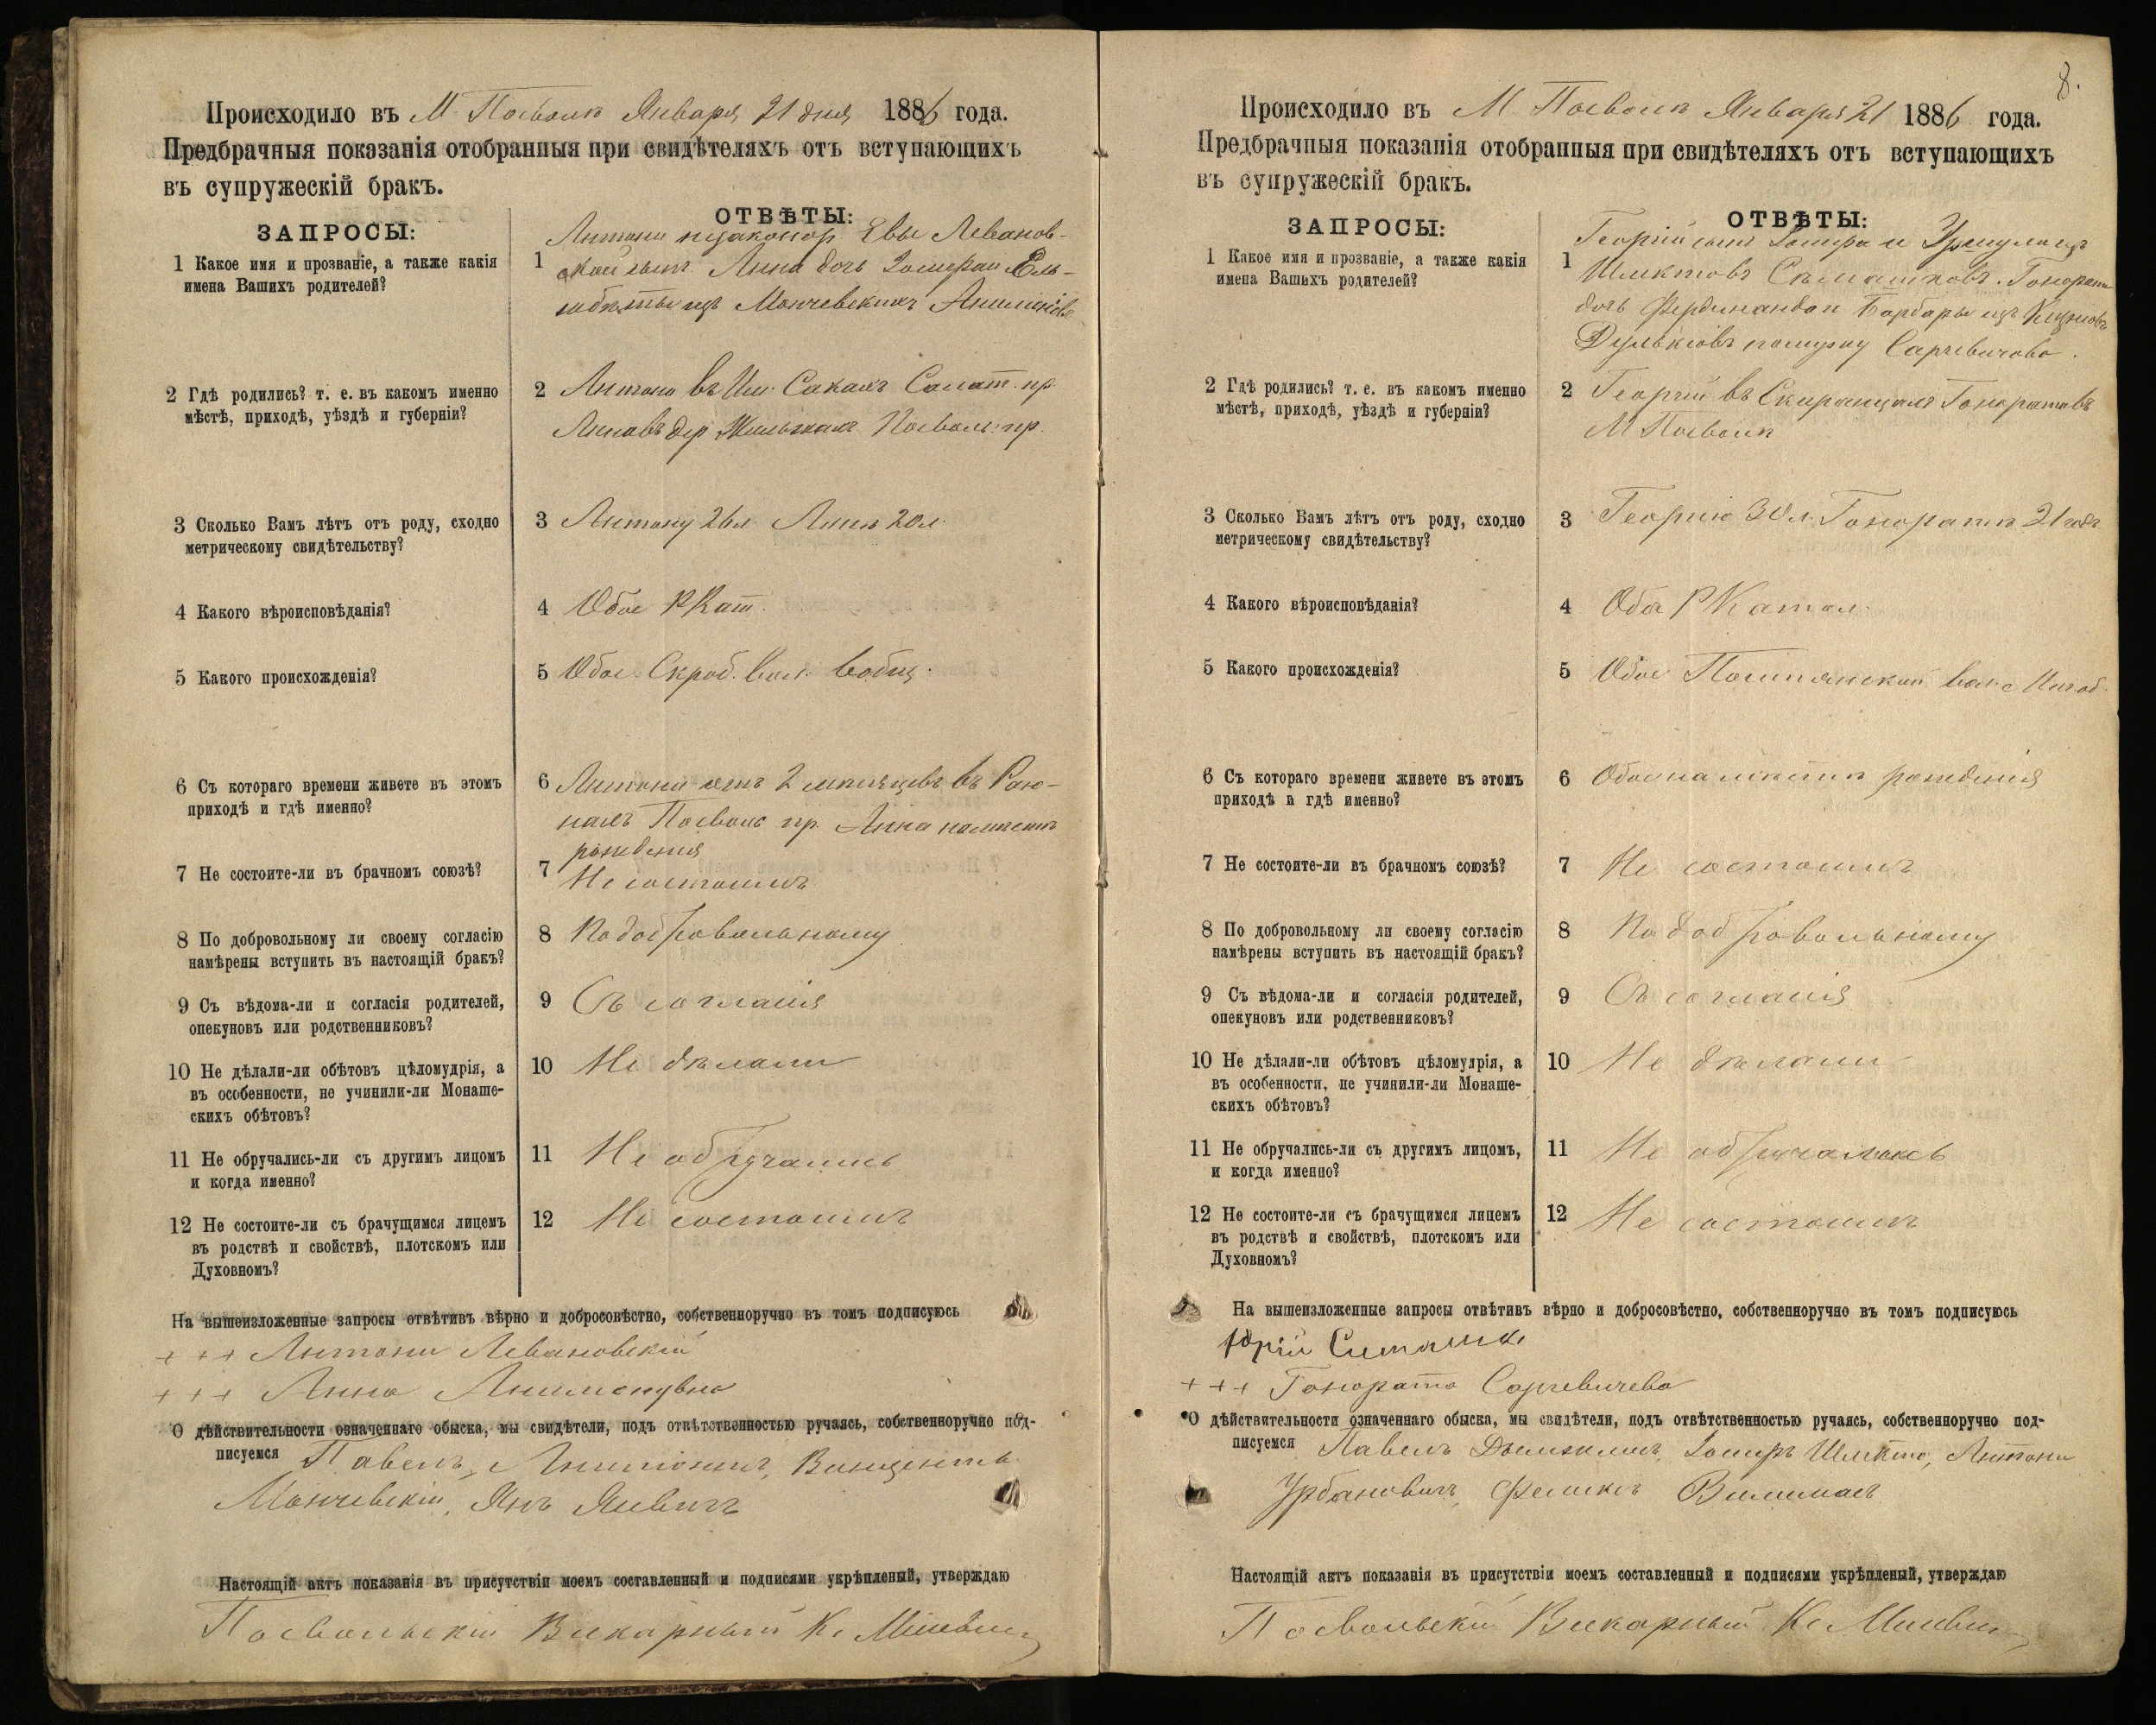 Происходило въ М. Посволѣ Января 21 дня 1886 года.
Предбрачныя показанія отобранныя при свидѣтеляхъ отъ вступающихъ
въ супружескій бракъ.
ЗАПРОСЫ:
ОТВѢТЫ:
1 Какое имя и прозваніе, а также какія
имена Вашихъ родителей?
1 Антони незаконор. Евы Леванов-
ской сынъ. Анна дочь
изъ Мончевскихъ
2 Гдѣ родились? т. е. въ какомъ именно
мѣстѣ, приходѣ, уѣздѣ и губерніи?
2 Антони въ Им. Сакахъ Салат. пр.
Анна въ дер. Посволь. пр.
3 Сколько Вамъ лѣтъ отъ роду, сходно
метрическому свидѣтельству?
3 Антону 26 л. Аннѣ 20 л.
4 Какого вѣроисповѣданія?
4 Обое Р Кат.
5 Какого происхожденія?
5 Обое Скроб. вол.
6 Съ котораго времени живете въ этомъ
приходѣ и гдѣ именно?
6 Антони отъ 2 мѣсяцевъ въ Раю-
нахъ Посволь пр. Анна на мѣстѣ
рожденія
7 Не состоите-ли въ брачномъ союзѣ?
7 Не состоимъ
8 По добровольному ли своему согласію
намѣрены вступить въ настоящій бракъ?
8 По добровольному
9 Съ вѣдома-ли и согласія родителей,
опекуновъ или родственниковъ?
9 Съ согласія
10 Не дѣлали-ли обѣтовъ цѣломудрія, а
въ особенности, не учинили-ли Монаше-
скихъ обѣтовъ?
10 Не дѣлали
11 Не обручались-ли съ другимъ лицомъ
и когда именно?
11 Не обручались
12 Не состоите-ли съ брачущимся лицемъ
въ родствѣ и свойствѣ, плотскомъ или
Духовномъ?
12 Не состоимъ
На вышеизложенные запросы отвѣтивъ вѣрно и добросовѣстно, собственноручно въ томъ подписуюсь
+ + + Антони Левановскій
+ + + Анна
О дѣйствительности означеннаго обыска, мы свидѣтели, подъ отвѣтственностью ручаясь, собственноручно под-
писуемся Павелъ Винцентъ
Мончевскій, Янъ Яневичъ
Настоящій актъ показанія въ присутствіи моемъ составленный и подписями укрѣпленый, утверждаю
Посвольскій Викарный Кс.
8.
Происходило въ М. Посволѣ Января 21 1886 года.
Предбрачныя показанія отобранныя при свидѣтеляхъ отъ вступающихъ
въ супружескій бракъ.
ЗАПРОСЫ:
ОТВѢТЫ:
1 Какое имя и прозваніе, а также какія
имена Вашихъ родителей?
1 Георгій сынъ Іосифа и Уршули изъ
Гонората
дочь Фердинанда и Барбары изъ
Сарчевичово.
2 Гдѣ родились? т. е. въ какомъ именно
мѣстѣ, приходѣ, уѣздѣ и губерніи?
2 Георгій въ Гонората въ
М Посволѣ
3 Сколько Вамъ лѣтъ отъ роду, сходно
метрическому свидѣтельству?
3 Георгію 30 л. Гоноратѣ 21 годъ
4 Какого вѣроисповѣданія?
4 Оба Р Катол.
5 Какого происхожденія?
5 Обое вол.
6 Съ котораго времени живете въ этомъ
приходѣ и гдѣ именно?
6 Обое на мѣстѣ рожденія
7 Не состоите-ли въ брачномъ союзѣ?
7 Не состоимъ
8 По добровольному ли своему согласію
намѣрены вступить въ настоящій бракъ?
8 По добровольному
9 Съ вѣдома-ли и согласія родителей,
опекуновъ или родственниковъ?
9 Съ согласія
10 Не дѣлали-ли обѣтовъ цѣломудрія, а
въ особенности, не учинили-ли Монаше-
скихъ обѣтовъ?
10 Не дѣлали
11 Не обручались-ли съ другимъ лицомъ,
и когда именно?
11 Не обручались
12 Не состоите-ли съ брачущимся лицемъ
въ родствѣ и свойствѣ, плотскомъ или
Духовномъ?
12 Не состоимъ
На вышеизложенные запросы отвѣтивъ вѣрно и добросовѣстно, собственноручно въ томъ подписуюсь
Юрій
+ + + Гонората Сарчевичева
О дѣйствительности означеннаго обыска, мы свидѣтели, подъ отвѣтственностью ручаясь, собственноручно под-
писуемся Павелъ Іосифъ Антони
Урбановичъ, Феликсъ
Настоящій актъ показанія въ присутствіи моемъ составленный и подписями укрѣпленый, утверждаю
Посвольскій Викарный Кс.